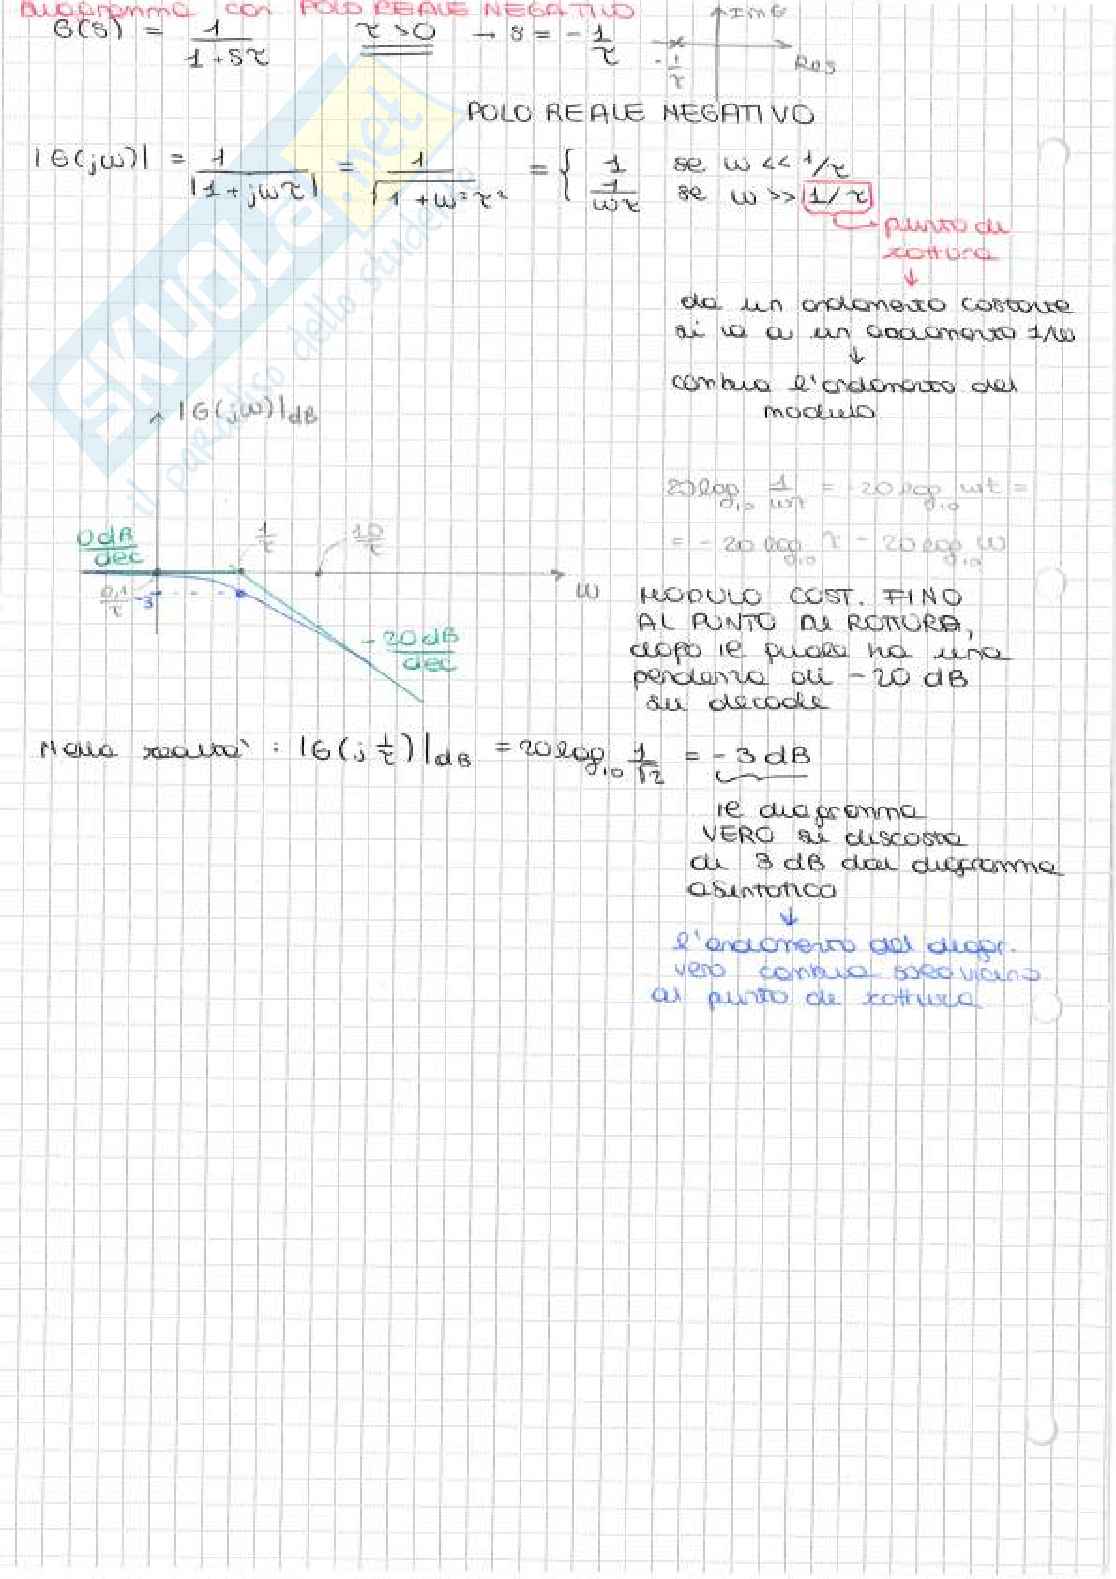 Diagramma con POLO REALE NEGATIVO
G(s) = 1/(1+sτ)   τ>0 → s = -1/τ
Im G
Re s
-1/τ
POLO REALE NEGATIVO
|G(jω)| = 1/|1+jωτ| = 1/√(1+ω²τ²) = { 1 se ω << 1/τ
1/ωτ se ω >> 1/τ
punto di
rottura
↓
da un andamento costante
si va a un andamento 1/ω
↓
cambia l'andamento del
modulo
|G(jω)|dB
20log10 1/ωτ = -20log10 ωτ =
= -20log10 τ - 20log10 ω
0dB/dec
1/τ
10/τ
0,1/τ
-3
ω
-20dB/dec
MODULO COST. FINO
AL PUNTO DI ROTTURA,
dopo il quale ha una
pendenza di -20 dB
su decade
Nella realtà : |G(j 1/τ)|dB = 20log10 1/√2 = -3 dB
il diagramma
VERO si discosta
di 3 dB dal diagramma
asintotico
↓
l'andamento del diagr.
vero cambia
al punto di rottura
SKUOLA.net
il paradiso dello studente